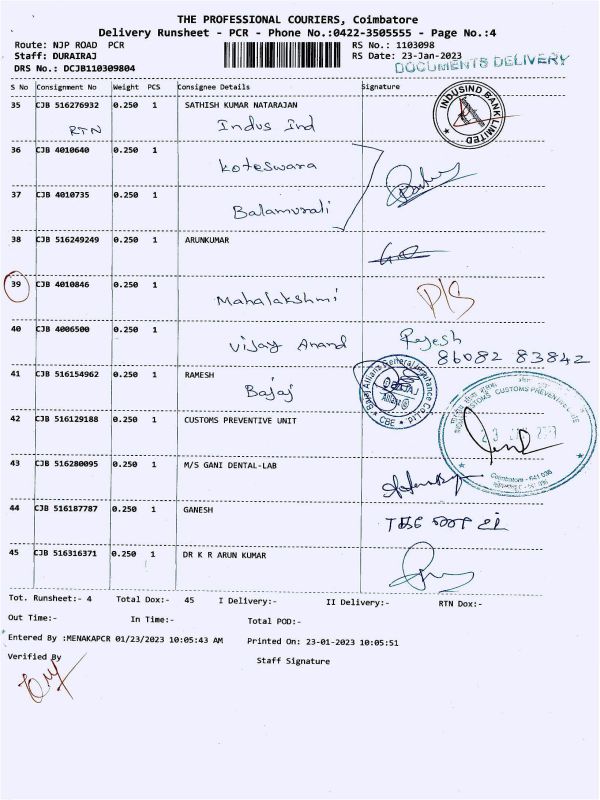 THE PROFESSIONAL COURIERS, Coimbatore
Delivery Runsheet - PCR - Phone No.:0422-3505555 - Page No.:4
Route: NJP ROAD PCR RS No.: 1103098
Staff: DURAIRAJ RS Date: 23-Jan-2023
DRS No.: DCJB110309804 DOCUMENTS DELIVERY
S No Consignment No Weight PCS Consignee Details Signature
35 CJB 516276932 0.250 1 SATHISH KUMAR NATARAJAN
RTN Indus Ind
INDUSIND BANK LIMITED
36 CJB 4010640 0.250 1
Koteswara
37 CJB 4010735 0.250 1
Balamurali
38 CJB 516249249 0.250 1 ARUNKUMAR
39 CJB 4010846 0.250 1
Mahalakshmi P/S
40 CJB 4006500 0.250 1
Vijay Anand Rajesh
86082 83842
41 CJB 516154962 0.250 1 RAMESH
Bajaj
Bajaj Allianz General Insurance Co Ltd
CBE
42 CJB 516129188 0.250 1 CUSTOMS PREVENTIVE UNIT
CUSTOMS PREVENTIVE
Coimbatore - 641 018
43 CJB 516280095 0.250 1 M/S GANI DENTAL-LAB
44 CJB 516187787 0.250 1 GANESH
45 CJB 516316371 0.250 1 DR K R ARUN KUMAR
Tot. Runsheet:- 4 Total Dox:- 45 I Delivery:- II Delivery:- RTN Dox:-
Out Time:- In Time:- Total POD:-
Entered By :MENAKAPCR 01/23/2023 10:05:43 AM Printed On: 23-01-2023 10:05:51
Verified By Staff Signature